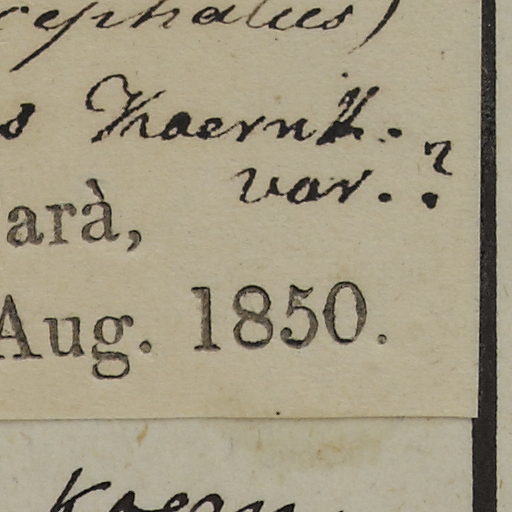 cephalus)
s Koernk.
var. ?
arà,
Aug. 1850.
Koern.